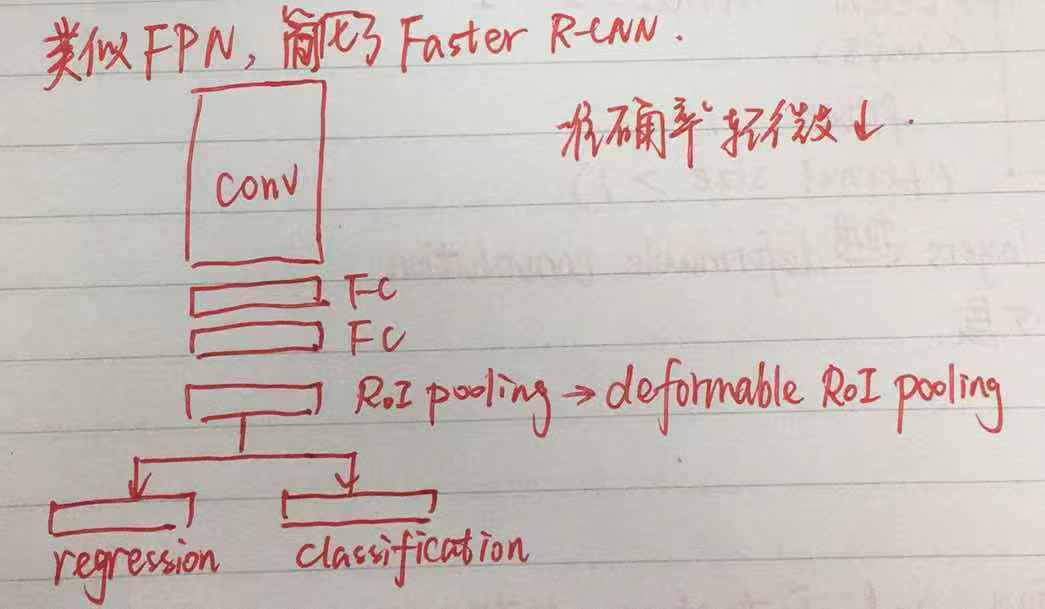 类似FPN, 简化了 Faster R-CNN.
准确率轻微↓.
conv
FC
FC
RoI pooling → deformable RoI pooling
regression
classification